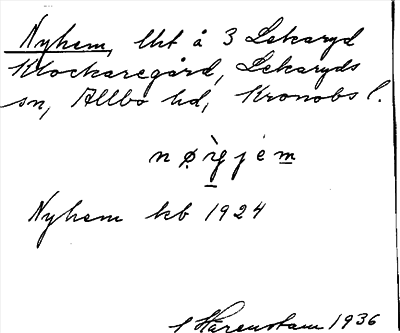 Nyhem, lht å 3 Lekaryd
Klockaregård, Lekaryds
sn, Allbo hd, Kronobs l.
Nyhem kb 1924
Harenstam 1936